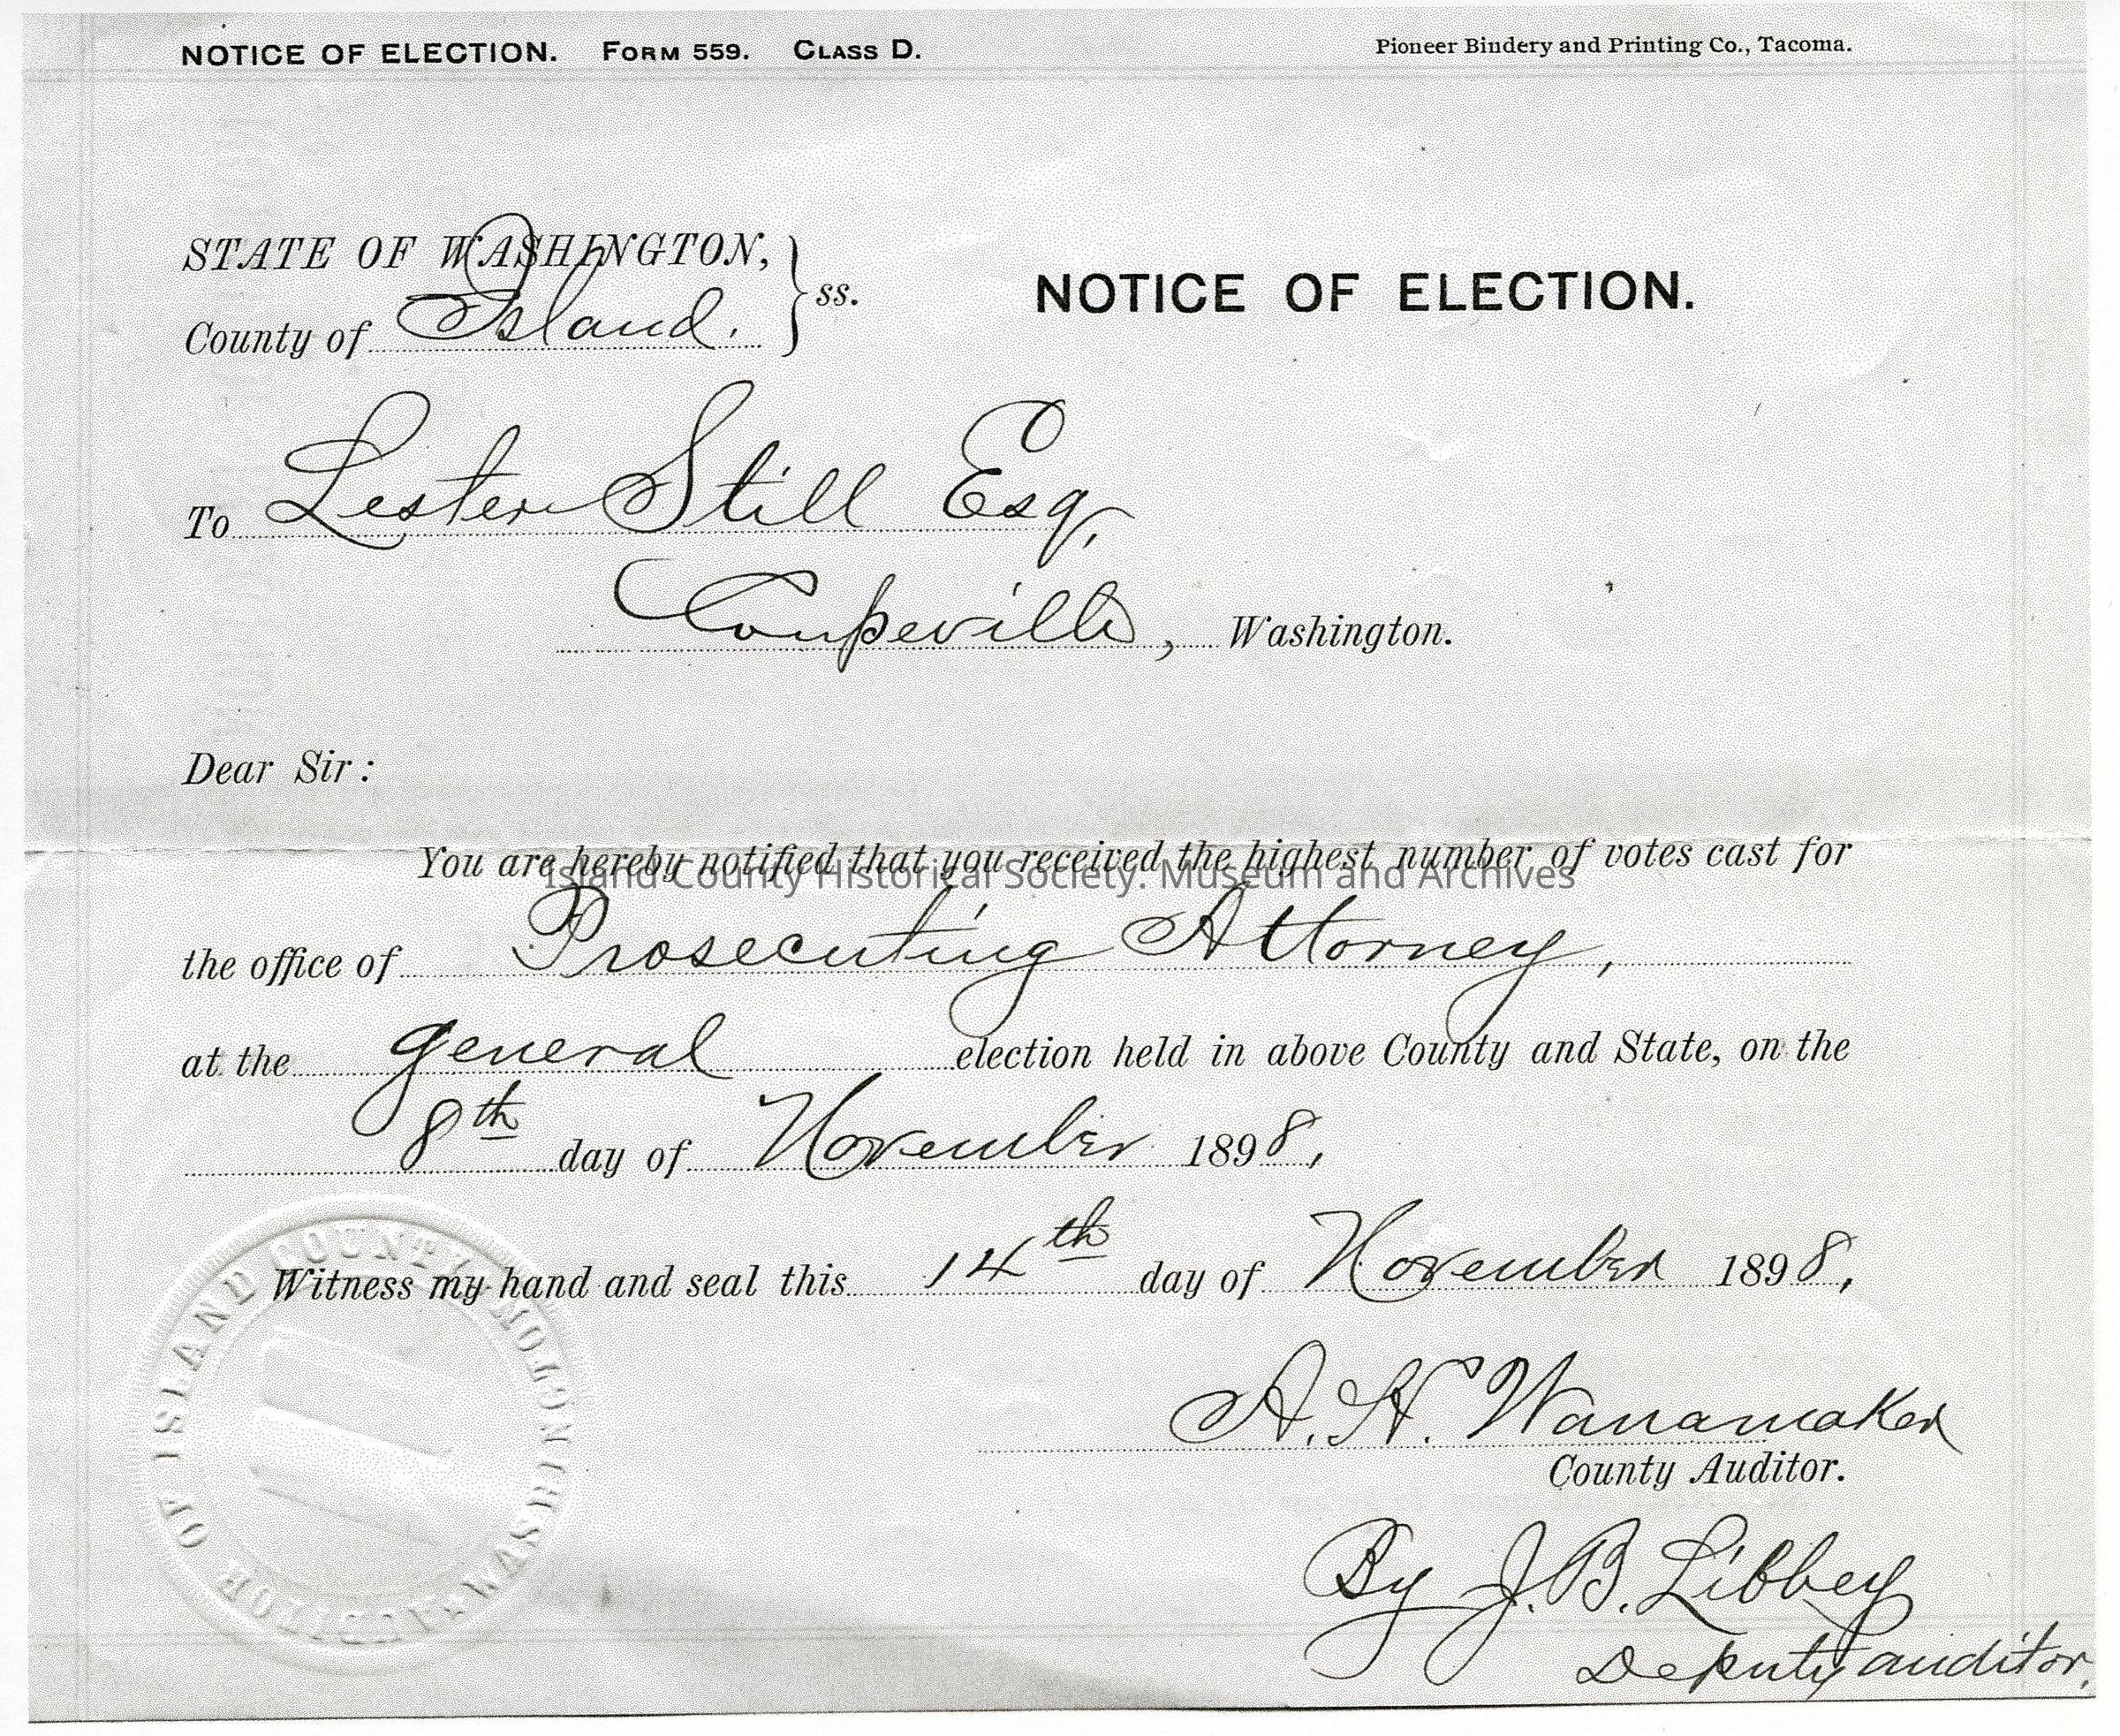 NOTICE OF ELECTION. FORM 559. CLASS D.
Pioneer Bindery and Printing Co., Tacoma.
STATE OF WASHINGTON,
County of Island.
ss.
NOTICE OF ELECTION.
To Lester Still Esq,
Coupeville, Washington.
Dear Sir:
You are hereby notified that you received the highest number of votes cast for
Island County Historical Society. Museum and Archives
the office of Prosecuting Attorney,
at the general election held in above County and State, on the
8th day of November 1898,
Witness my hand and seal this 14th day of November 1898,
A. H. Wanamaker
County Auditor.
By J. B. Libbey
Deputy auditor,
AUDITOR OF ISLAND COUNTY WASHINGTON